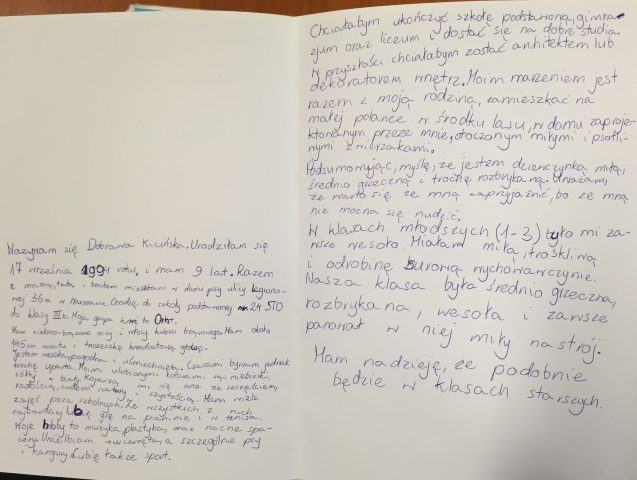 Nazywam się Dobrawa Kicińska. Urodziłam się
17 września 1994 roku, i mam 9 lat. Razem
z mamą, tatą i bratem mieszkam w domu przy ulicy Legiono-
wej 36a w Chodzę do szkoły podstawowej nr 24 STO
do klasy III b. Moja grupa krwi to
Mam oczy i włosy koloru brązowego. Mam około
145 cm wzrostu i troszeczkę głowę.
Jestem wesoła, pogodna i uśmiechnięta. Czasami bywam jednak
trochę uparta. Moimi ulubionymi kolorami są: niebieski,
żółty i biały. Kojarzą mi się one ze szczęściem,
radością, cudem natury i czystością. Mam wiele
zajęć poza szkolnych. Ze wszystkich z nich
najbardziej lubię grę na pianinie i w tenisa.
Moje hobby to muzyka, plastyka, oraz nocne spa-
cery. Uwielbiam zwierzęta, a szczególnie psy
i kangury. Lubię także sport.
Chciałabym ukończyć szkołę podstawową, gimna-
zjum oraz liceum i dostać się na dobre studia.
W przyszłości chciałabym zostać architektem lub
dekoratorem wnętrz. Moim marzeniem jest
razem z moją rodziną, zamieszkać na
małej polance w środku lasu, w domu zaproje-
ktowanym przeze mnie, otoczonym miłymi i psotli-
nymi zwierzakami.
Podsumowując, myślę, że jestem dziewczynką miłą,
średnio grzeczną i trochę rozbrykaną. Uważam,
że warto się ze mną zaprzyjaźnić, bo ze mną
nie można się nudzić.
W klasach młodszych (1-3) było mi za-
wsze wesoło. Miałam miłą, troskliwą
i odrobinę surową wychowawczynię.
Nasza klasa była średnio grzeczna,
rozbrykana, wesoła i zawsze
panował w niej miły nastrój.
Mam nadzieję, że podobnie
będzie w klasach starszych.